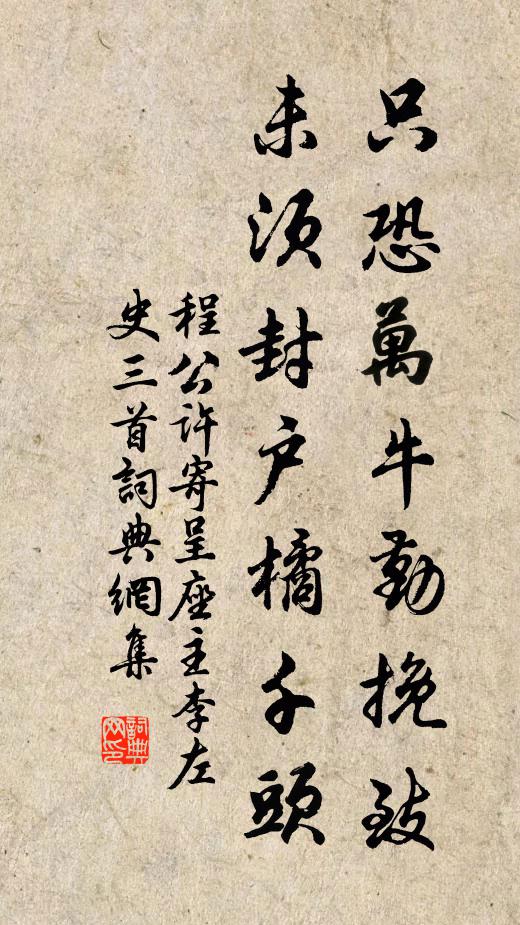 只恐萬牛勤挽致
未須封户橘千頭
程公許寄呈座主李左
史三首詞典網集
詞典
网印